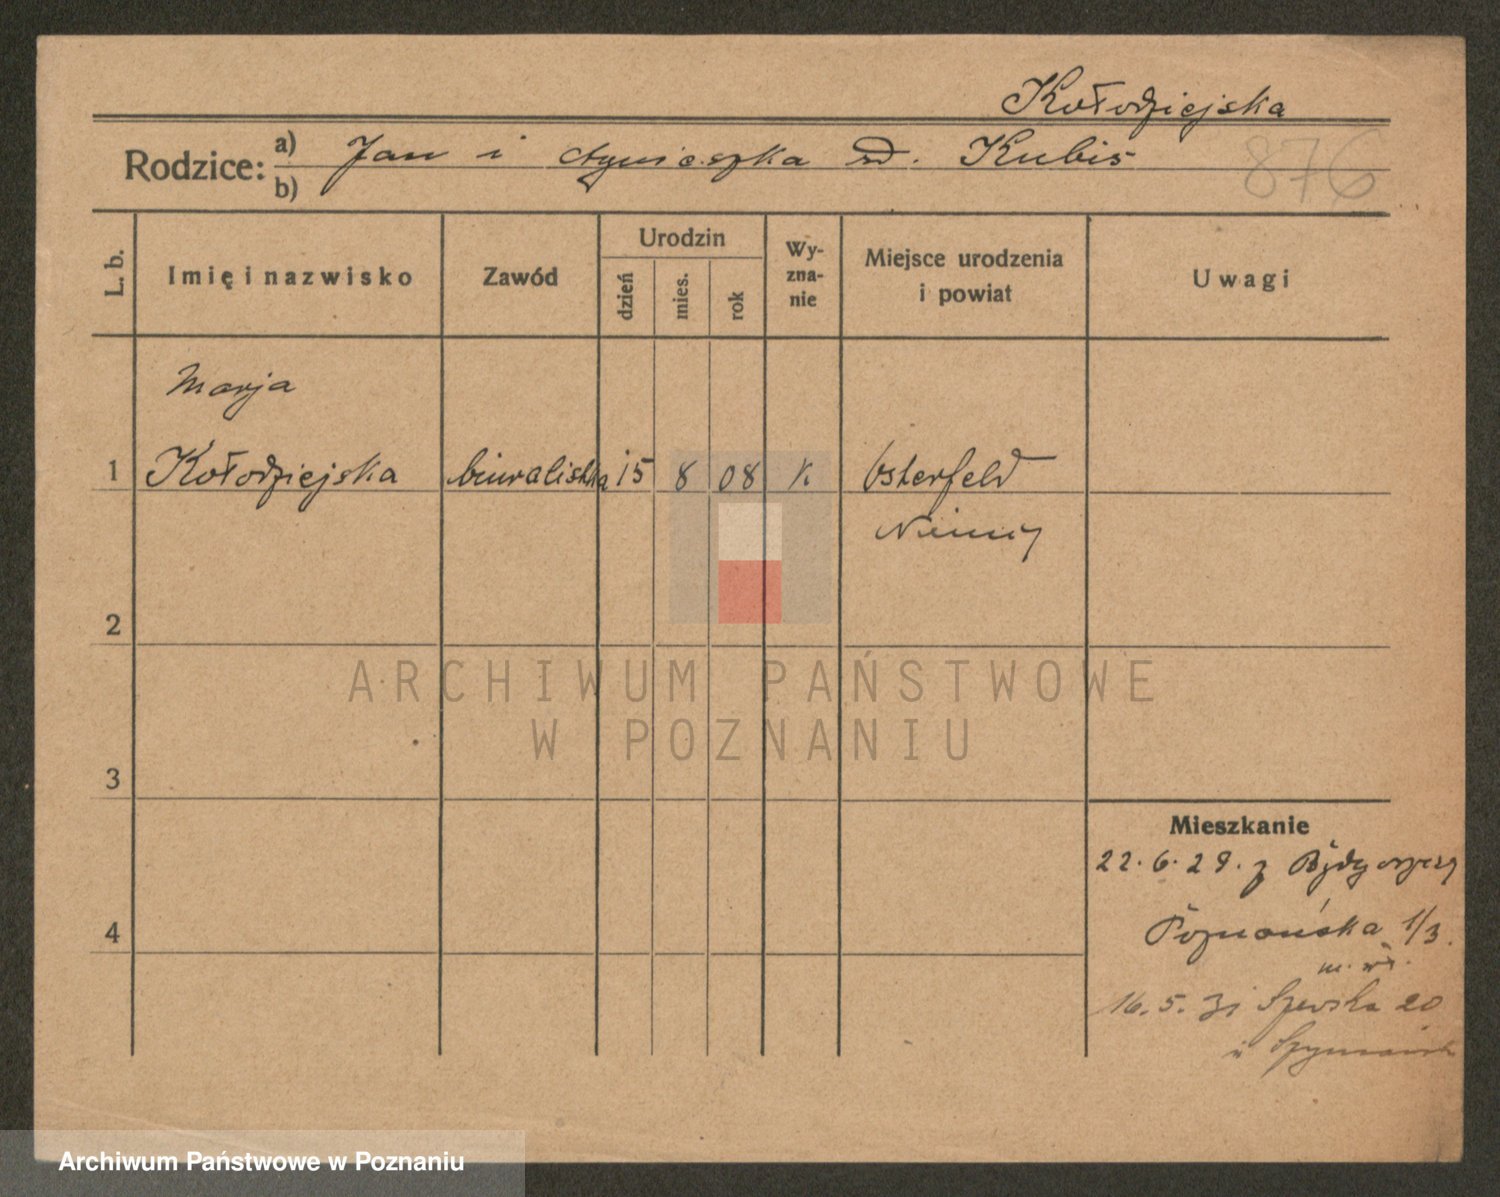 Kołodziejska
Rodzice: a) Jan i Agnieszka zd. Kubiś
b)
876
L. b.
Imię i nazwisko
Zawód
Urodzin
dzień
mies.
rok
Wy-
zna-
nie
Miejsce urodzenia
i powiat
Uwagi
Marja
1 Kołodziejska biuralistka 15 8 08 K Osterfeld
Niemcy
2
3
4
Mieszkanie
22.6.28. z Bydgoszczy
Poznańska 1/3.
16.5.31 Szewska 20
ARCHIWUM PAŃSTWOWE
W POZNANIU
Archiwum Państwowe w Poznaniu